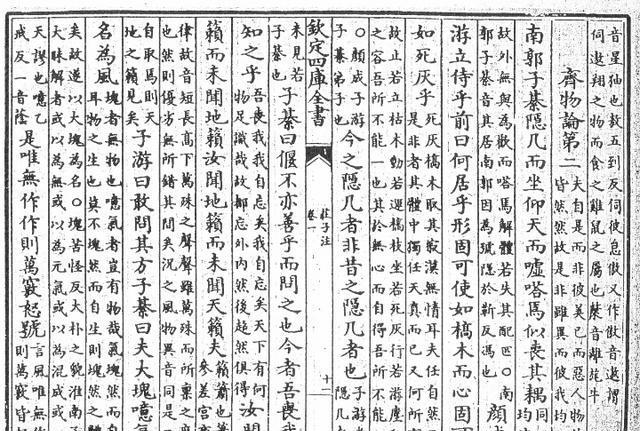 音星狖也敖五到反伺彼怠傲又作傲音遨謂
伺遨翔之物而食之雞鼠之屬也㹈音離旄牛
齊物論第二
夫自是而非彼美已而惡人物
皆然然故是非雖異而彼我均
南郭子綦隱几而坐仰天而嘘嗒焉似喪其耦
同
均
故外無與為歡而嗒焉解體若失其配匹〇南
郭子綦音其居南郭因為號隱於靳反馮也
顔
游立侍乎前曰何居乎形固可使如槁木而心固
如死灰乎
死灰槁木取其寂漠無情耳夫任自然
是非者其體中獨任天真而已又何所
故止若立枯木動若運槁枝坐若死灰行若遊塵
之容吾所不能一也其於無心而自得吾所不能
〇顔成子游
子綦弟子也
今之隱几者非昔之隱几者也
子游
隱几
欽定四庫全書
莊子注
卷一
十二
未見若
子綦也
子綦曰偃不亦善乎而問之也今者吾喪我
知之乎
吾喪我我自忘矣我自忘矣天下有何
物足識哉故都忘外内然後超然俱得
汝聞
籟而未聞地籟汝聞地籟而未聞天籟夫
籟簫也
參差宫商
律故音短長高下萬殊之聲聲雖萬殊而所稟之度
也然則優劣無所錯其間矣况之風物異音同是
自取焉則天
地之籟見矣
子游曰敢問其方子綦曰夫大塊噫氣
名為風
塊者無物也噫氣者豈有物哉氣塊然而自
耳物之生也莫不塊然而自生則塊然之體
矣故遂以大塊為名〇塊苦怪反大朴之貌淮南子
大昧解者或以為無或以為元氣或以為混成或
天謬也噫乙
戒反一音蔭
是唯無作作則萬竅怒號
言風唯無作
則萬竅皆